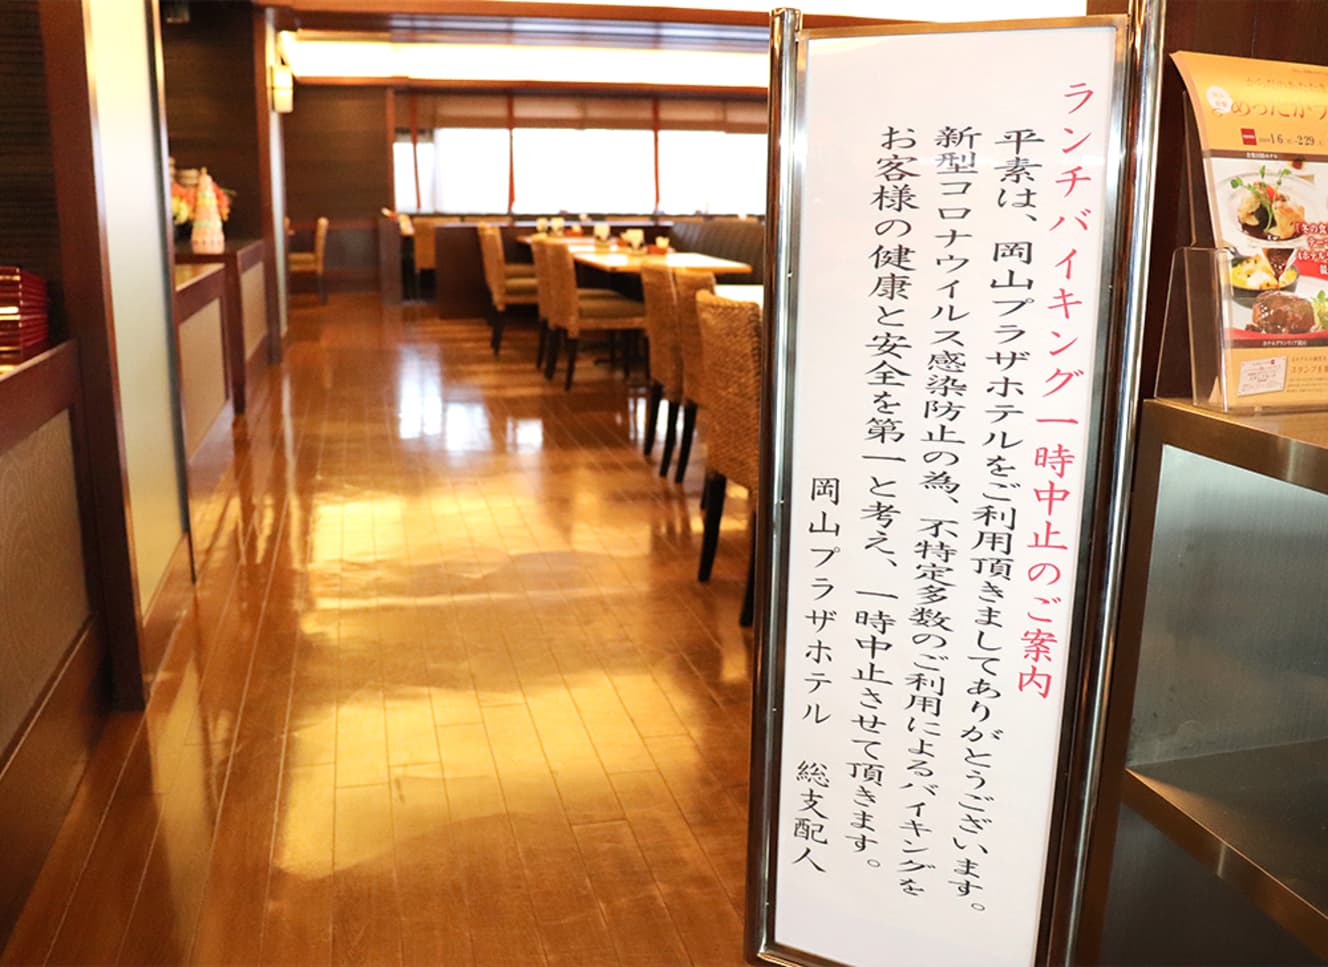 ランチバイキング一時中止のご案内
平素は、岡山プラザホテルをご利用頂きましてありがとうございます。
新型コロナウイルス感染防止の為、不特定多数のご利用によるバイキングを
お客様の健康と安全を第一と考え、一時中止させて頂きます。
岡山プラザホテル 総支配人
あったかフ
1.6
2.29